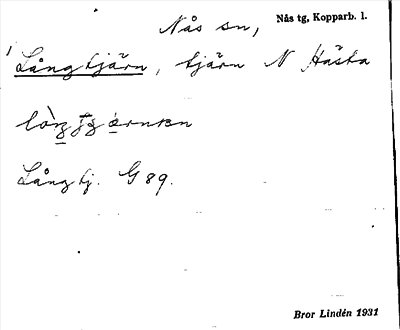 Nås sn, Nås tg, Kopparb. l.
Långtjärn, tjärn N Hästa
Långtj. G 89.
Bror Lindén 1931